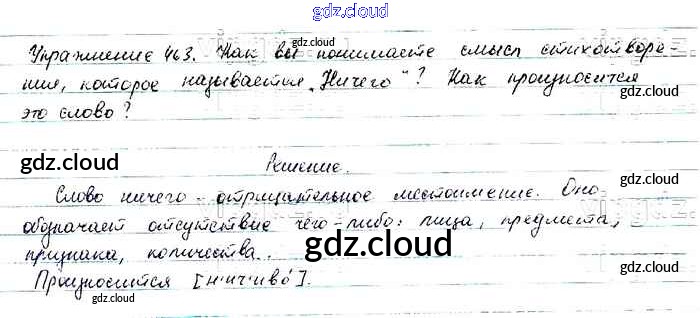 gdz.cloud
Упражнение 463. Как вы понимаете смысл стихотворе-
ния, которое называется „Ничего"? Как произносится
это слово?
gdz.cloud
gdz.cloud
Решение.
gdz.cloud
Слово ничего - отрицательное местоимение. Оно
обозначает отсутствие чего-либо: лица, предмета,
признака, количества.
gdz.cloud
gdz.cloud
Произносится [н'ич'иво́].
gdz.cloud
gdz.cloud